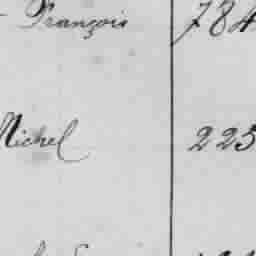 François 784
Michel 225